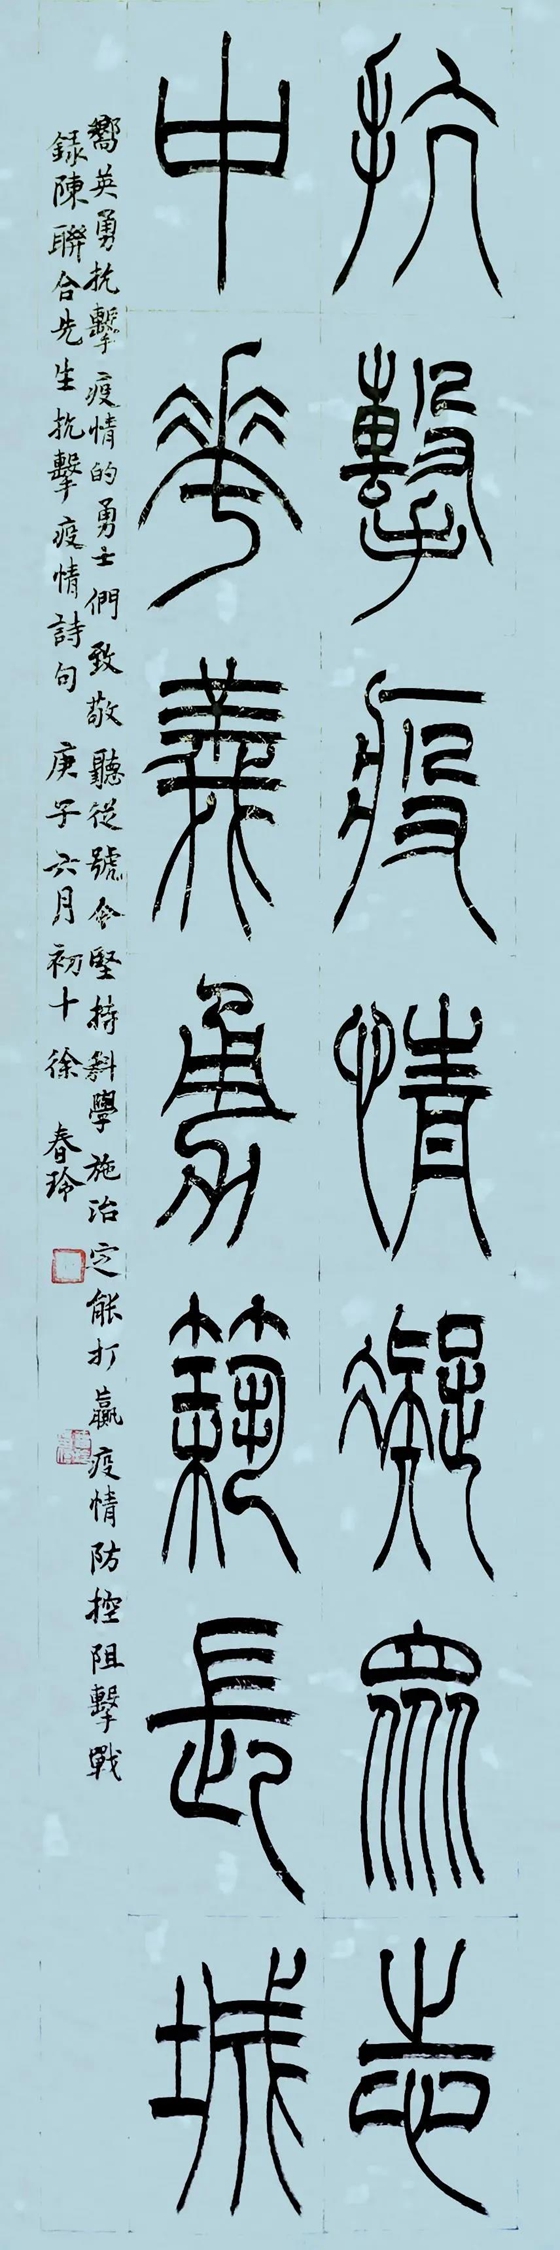 抗擊疫情凝眾志
中華義勇築長城
嚮英勇抗擊疫情的勇士們致敬聽從號令堅持科學施治定能打贏疫情防控阻擊戰
錄陳聯合先生抗擊疫情詩句 庚子六月初十 徐春玲